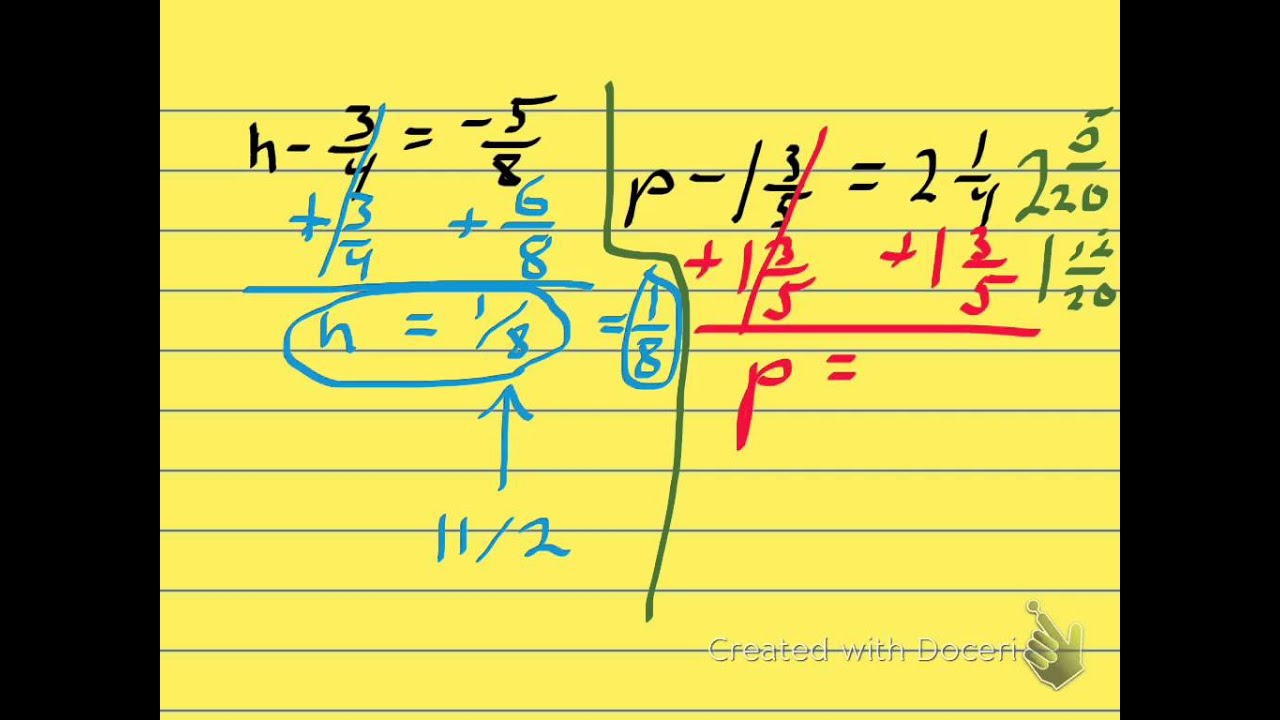 h - 3/4 = -5/8
+ 3/4 + 6/8
h = 1/8 = 1/8
11/2
p - 1 3/5 = 2 1/4 2 5/20
+ 1 3/5 + 1 3/5 1 12/20
p =
Created with Doceri